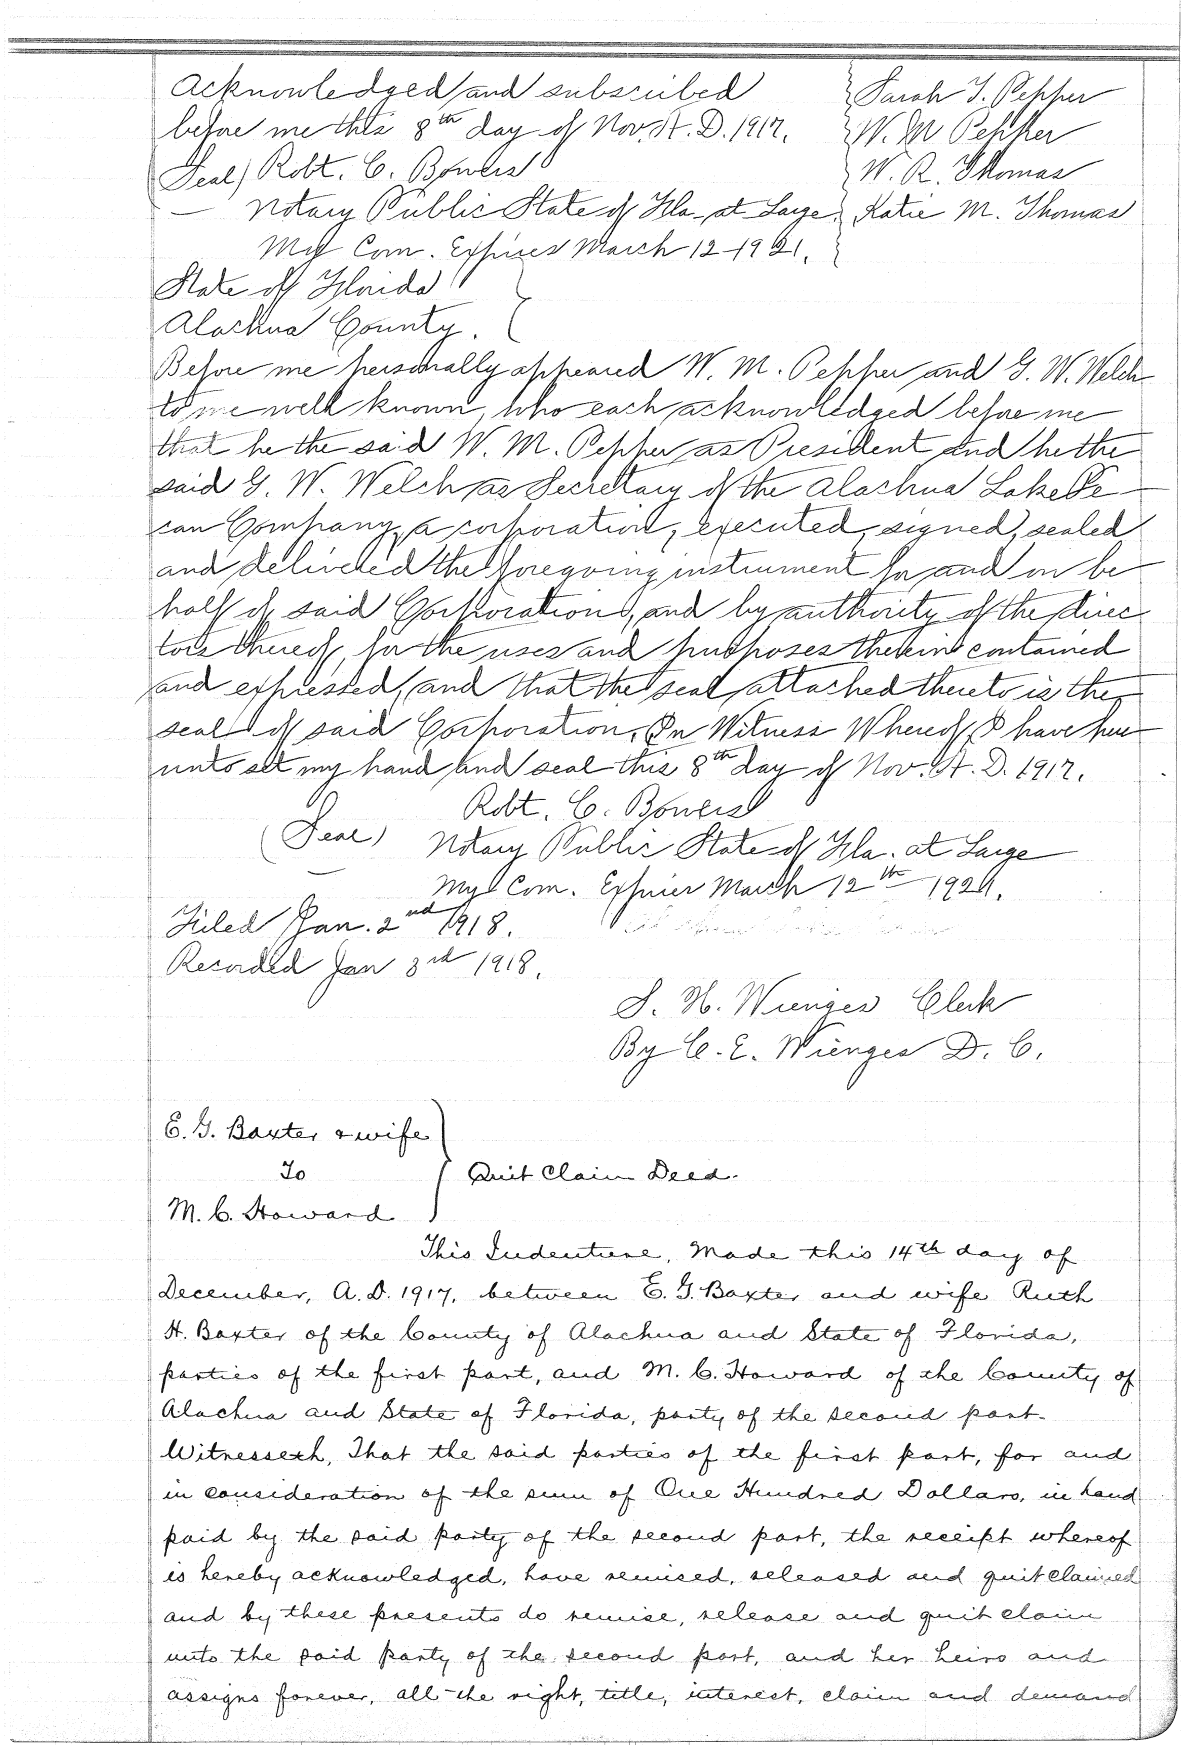 Acknowledged and subscribed
before me this 8th day of Nov. A. D. 1917.
(Seal) Robt. C. Bowers
Notary Public State of Fla. at Large.
My Com. Expires March 12 1921.
Sarah T. Pepper
W. M Pepper
W. R. Thomas
Katie M. Thomas
State of Florida
Alachua County.
Before me personally appeared W. M. Pepper and G. W. Welch
to me well known, who each acknowledged before me
that he the said W. M. Pepper as President and he the
said G. W. Welch as Secretary of the Alachua Lake Pe
can Company, a corporation, executed, signed, sealed
and delivered the foregoing instrument for and on be
half of said Corporation, and by authority of the direc
tors thereof, for the uses and purposes therein contained
and expressed, and that the seal attached thereto is the
seal of said Corporation. In Witness Whereof, I have here
unto set my hand and seal this 8th day of Nov. A. D. 1917.
Robt. C. Bowers
(Seal) Notary Public State of Fla. at Large
My Com. Expires March 12th 1921.
Filed Jan. 2nd 1918.
Recorded Jan 3rd 1918.
S. H. Wienges Clerk
By C. E. Wienges D. C.
E. G. Baxter & wife
To
Quit Claim Deed.
M. C. Howard
This Indenture, Made this 14th day of
December, A.D. 1917, between E. G. Baxter and wife Ruth
H. Baxter of the County of Alachua and State of Florida,
parties of the first part, and M. C. Howard of the County of
Alachua and State of Florida, party of the second part.
Witnesseth, That the said parties of the first part, for and
in consideration of the sum of One Hundred Dollars, in hand
paid by the said party of the second part, the receipt whereof
is hereby acknowledged, have remised, released and quit claimed
and by these presents do remise, release and quit claim
unto the said party of the second part, and her heirs and
assigns forever, all the right, title, interest, claim and demand